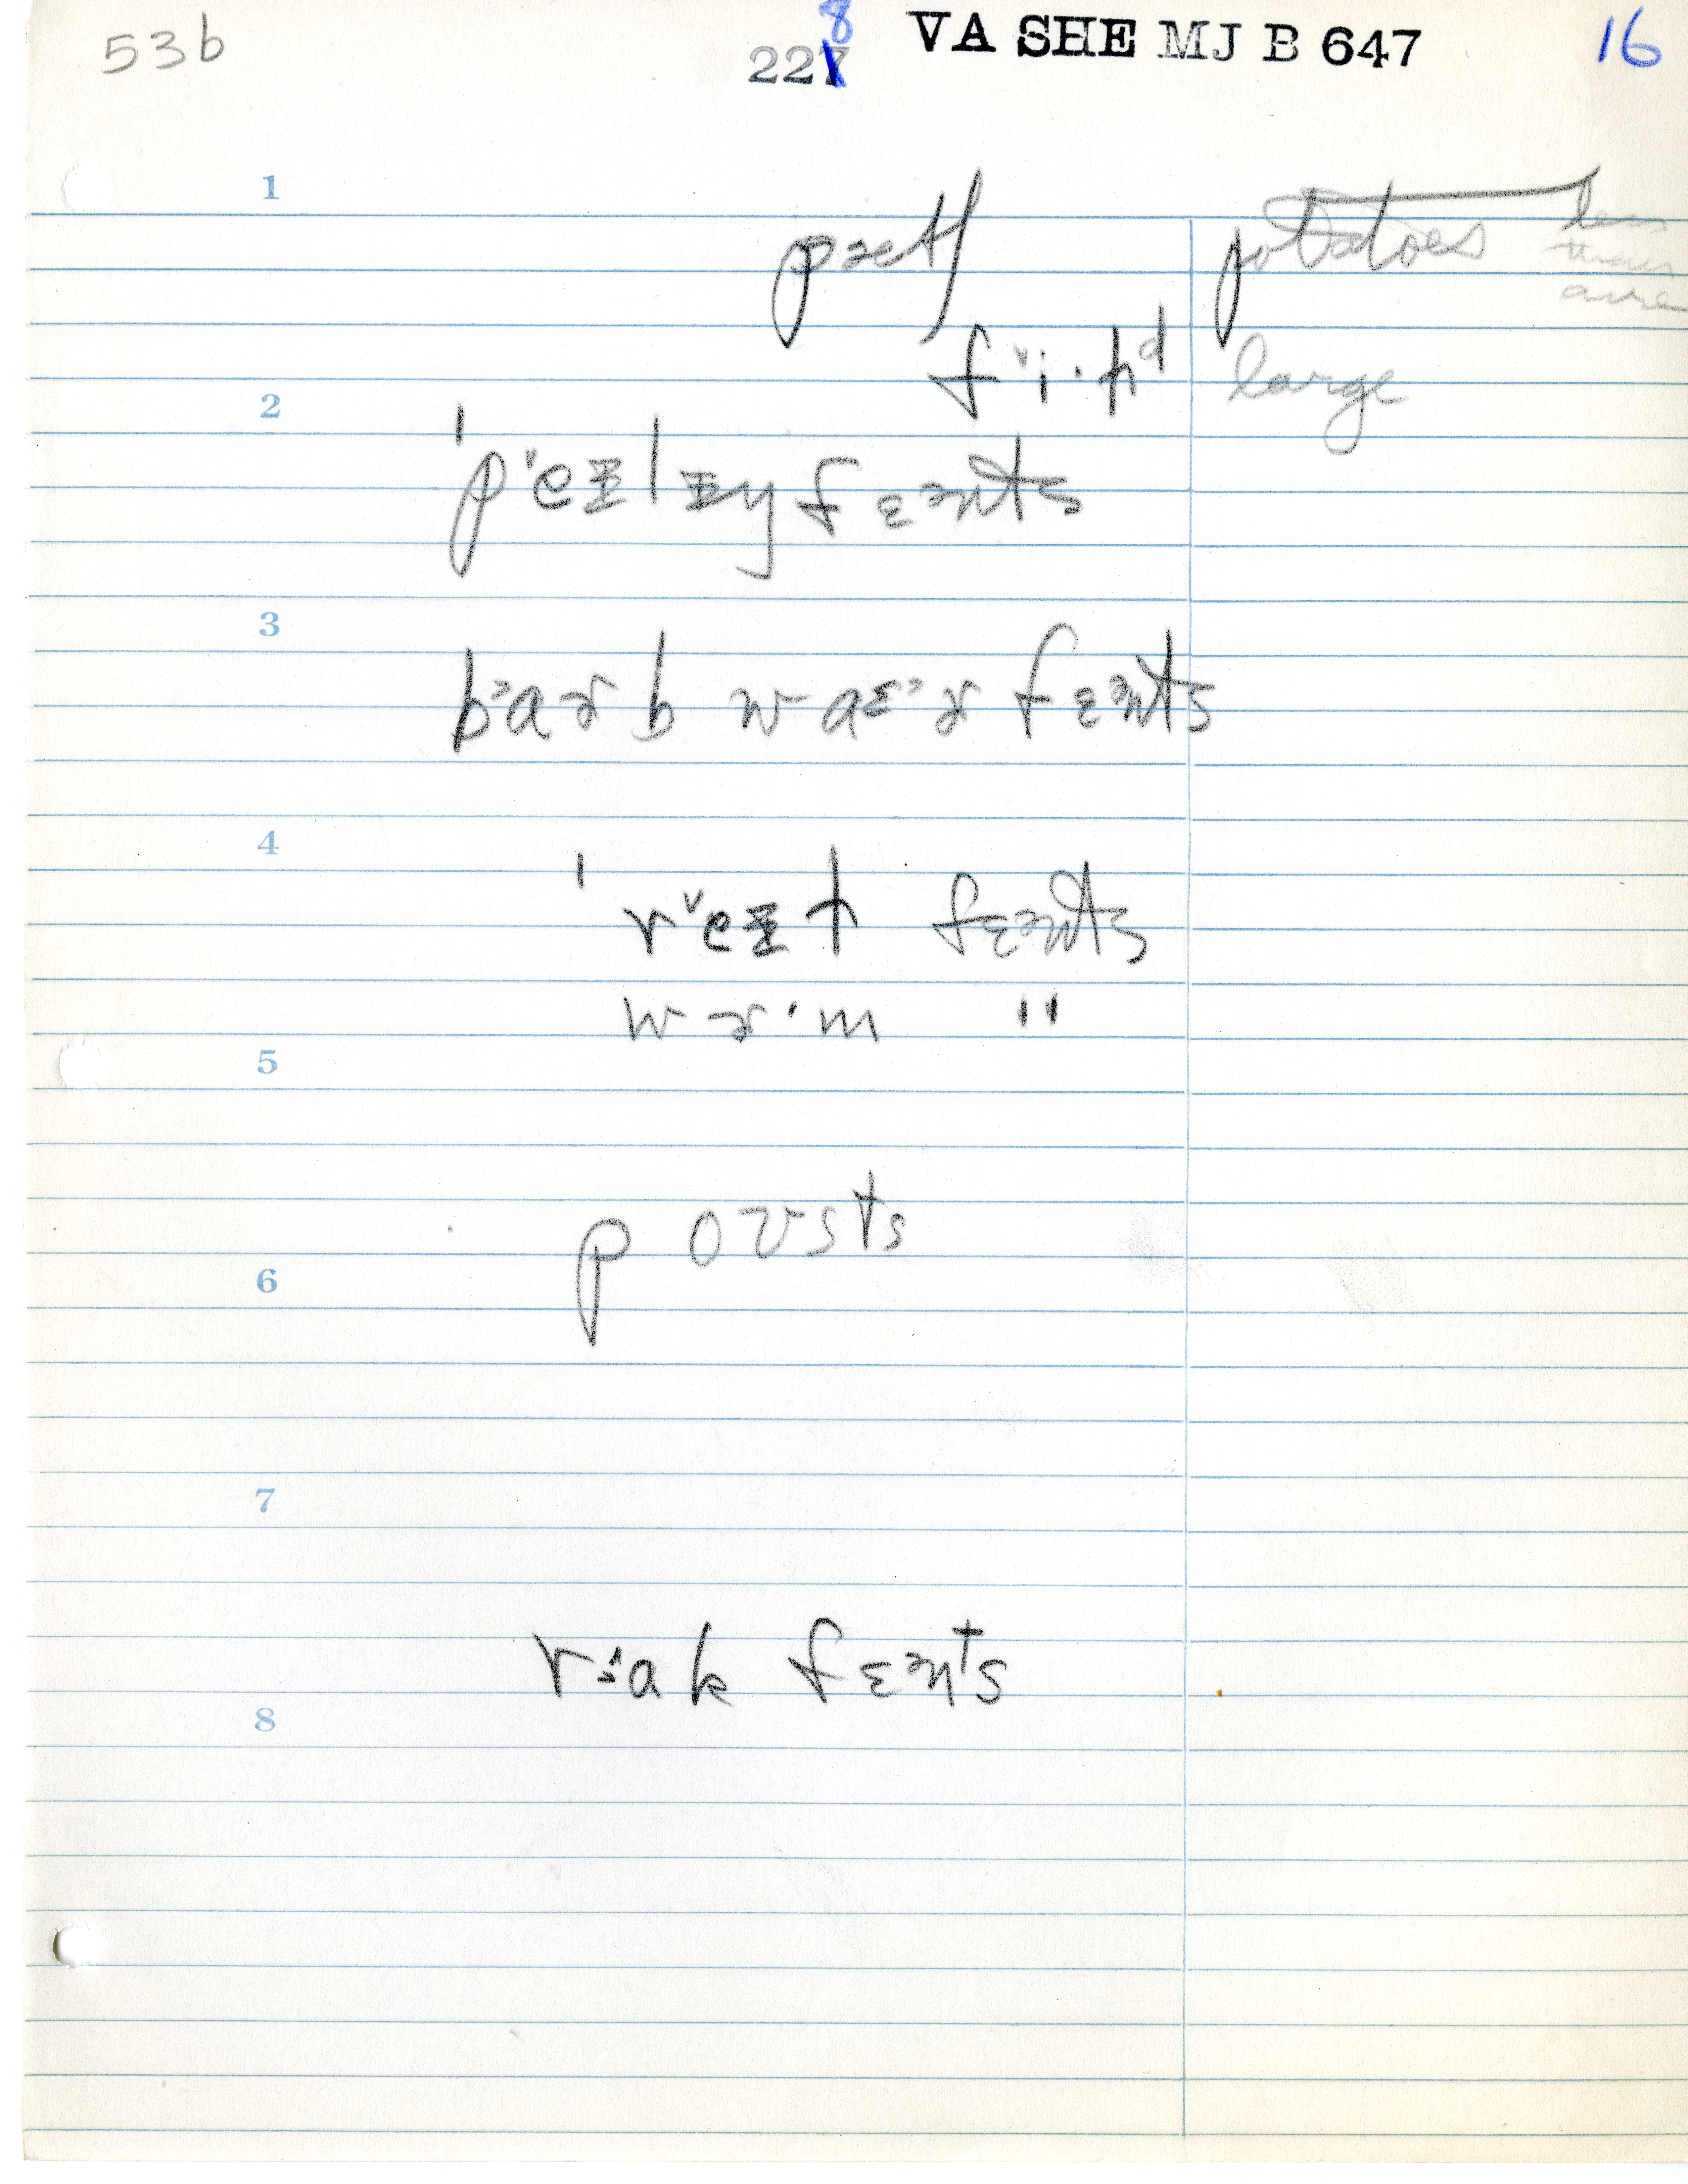 53b 2278 VA SHE MJ B 647 16
1
pætʃ potatoes less
than
acre
fᵛi·ɫd large
2
ˈpᵛeɪlɪŋ fɛənts
3
bᵊaɚb waɛᵊɚ fɛənts
4
ˈrᵛeɪɫ fɛənts
wɚ·m "
5
poʊsts
6
7
rᵊak fɛənts
8